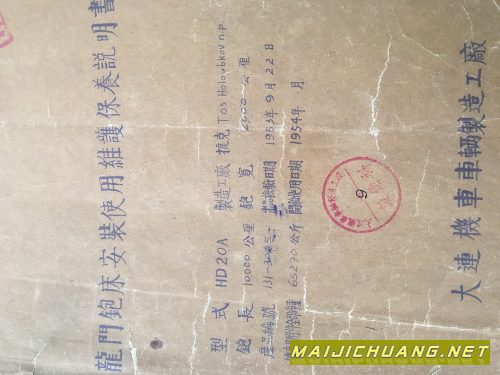 龍門鉋床安裝使用維護保養説明書
型式 HD20A 製造工廠 捷克 Tos Holoubkov n.p.
鉋長 10000 公厘 鉋寬 2000 公厘
產品編號 131- 檢驗日期 1953 年 9 月 22 日
65270 公斤 開始使用日期 1954 年 月
9
大連機車車輛製造工廠
MAIJICHUANG.NET